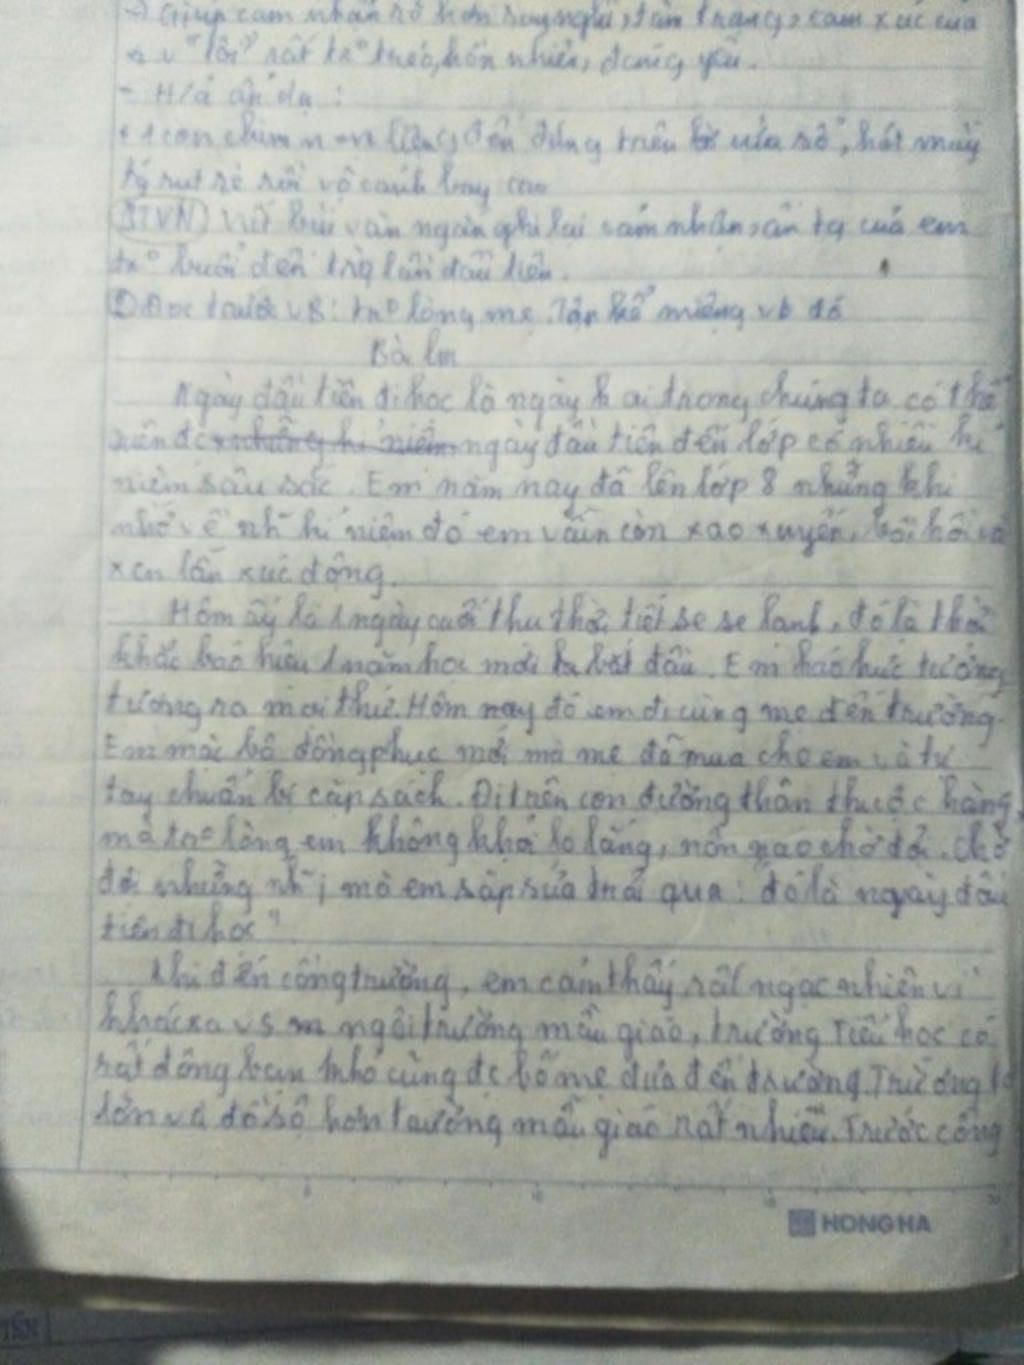 → Giúp cảm nhận rõ hơn suy nghĩ, tâm trạng, cảm xúc của
n v "tôi" rất trẻ thơ, hồn nhiên, đáng yêu.
- H/ả ẩn dụ :
+ 1 con chim n~n liệng đến đứng trên bờ cửa sổ, hát mấy
rụt rè rồi vỗ cánh bay cao
BTVN Viết bài văn ngắn ghi lại cảm nhận, ấn tg của em
tr° buổi đến trg lần đầu tiên.
Đọc trước VB: tr° lòng mẹ. Tập kể miệng vb đó
Bài lm
Ngày đầu tiên đi học là ngày k ai trong chúng ta có thể
ngày đầu tiên đến lớp có nhiều kỉ
niệm sâu sắc. Em năm nay đã lên lớp 8 nhưng khi
nhớ về nh~ kỉ niệm đó em vẫn còn xao xuyến, bồi hồi và
xen lẫn xúc động.
Hôm ấy là 1 ngày cuối thu thời tiết se se lạnh, đó là thời
khắc báo hiệu 1 năm học mới bắt đầu. Em háo hức tưởng
tượng ra mọi thứ. Hôm nay đó em đi cùng mẹ đến trường.
Em mặc bộ đồng phục mới mà mẹ đã mua cho em và tự
tay chuẩn bị cặp sách. Đi trên con đường thân thuộc hàng
mà tr° lòng em không khỏi lo lắng, nôn nao chờ đợi. Chờ
đợi những mà em sắp sửa trải qua: "đó là ngày đầu
tiên đi học".
Khi đến cổng trường, em cảm thấy rất ngạc nhiên vì
khác xa vs ngôi trường mẫu giáo, trường Tiểu học có
rất đông bạn nhỏ cùng đc bố mẹ đưa đến trường. Trường
lớn và đồ sộ hơn trường mẫu giáo rất nhiều. Trước cổng
HONG HA